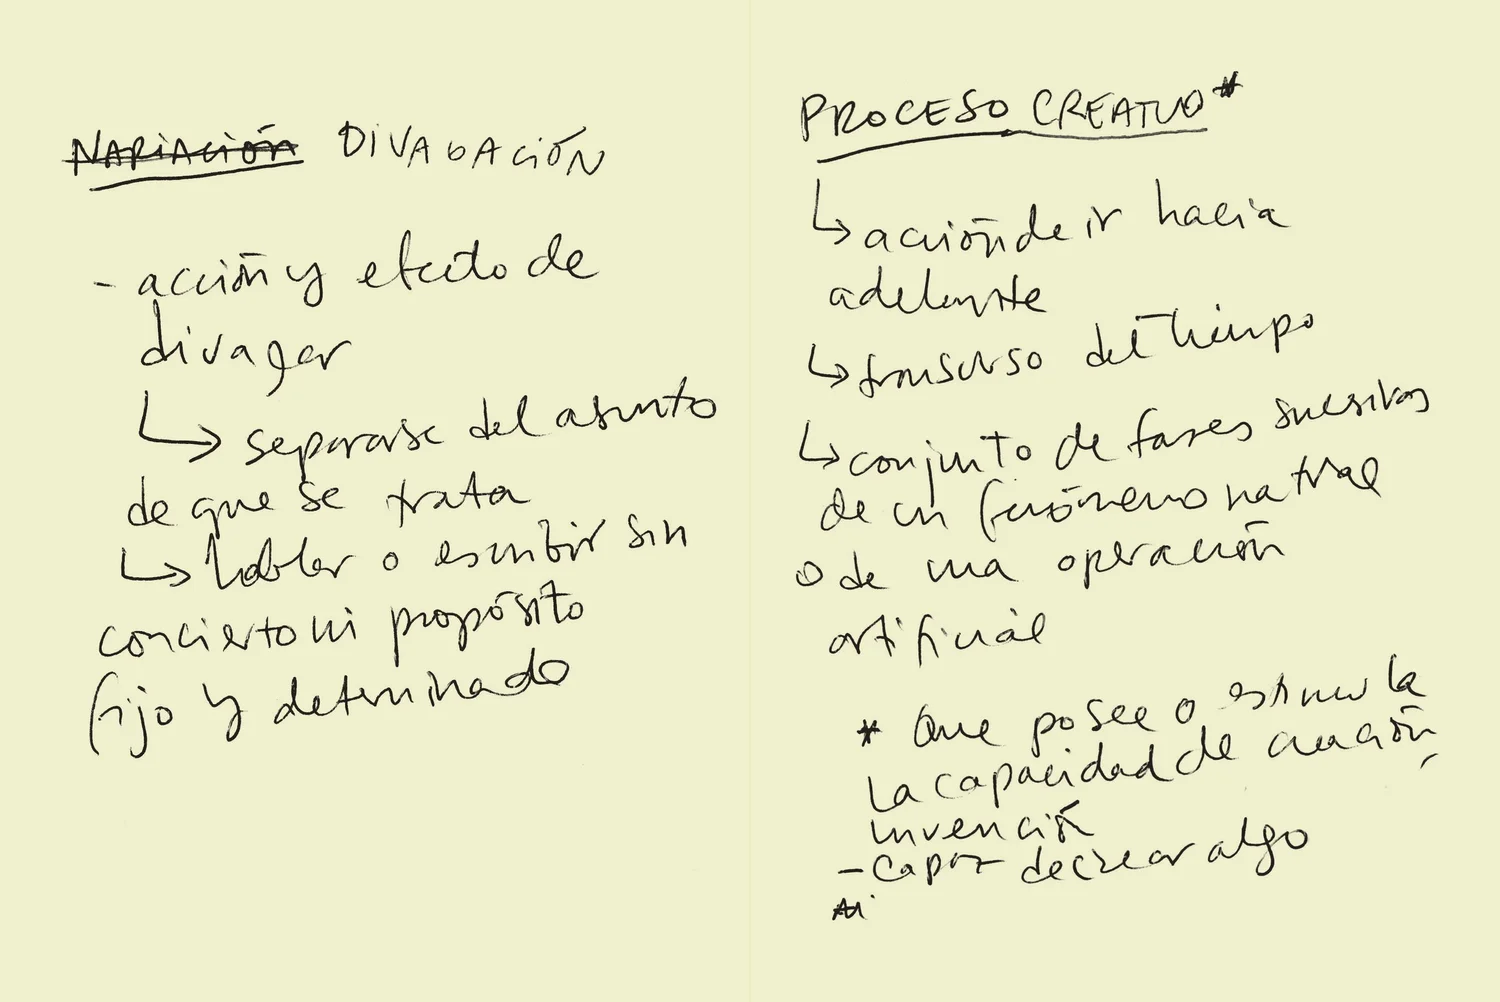 NARIACIÓN DIVAGACIÓN
- acción y efecto de
divagar
↳ separarse del asunto
de que se trata
↳ hablar o escribir sin
concierto ni propósito
fijo y determinado
PROCESO CREATIVO*
↳ acción de ir hacia
adelante
↳ transcurso del tiempo
↳ conjunto de fases sucesivas
de un fenómeno natural
o de una operación
artificial
* Que posee o la
la capacidad de creación,
invención
- capaz de crear algo